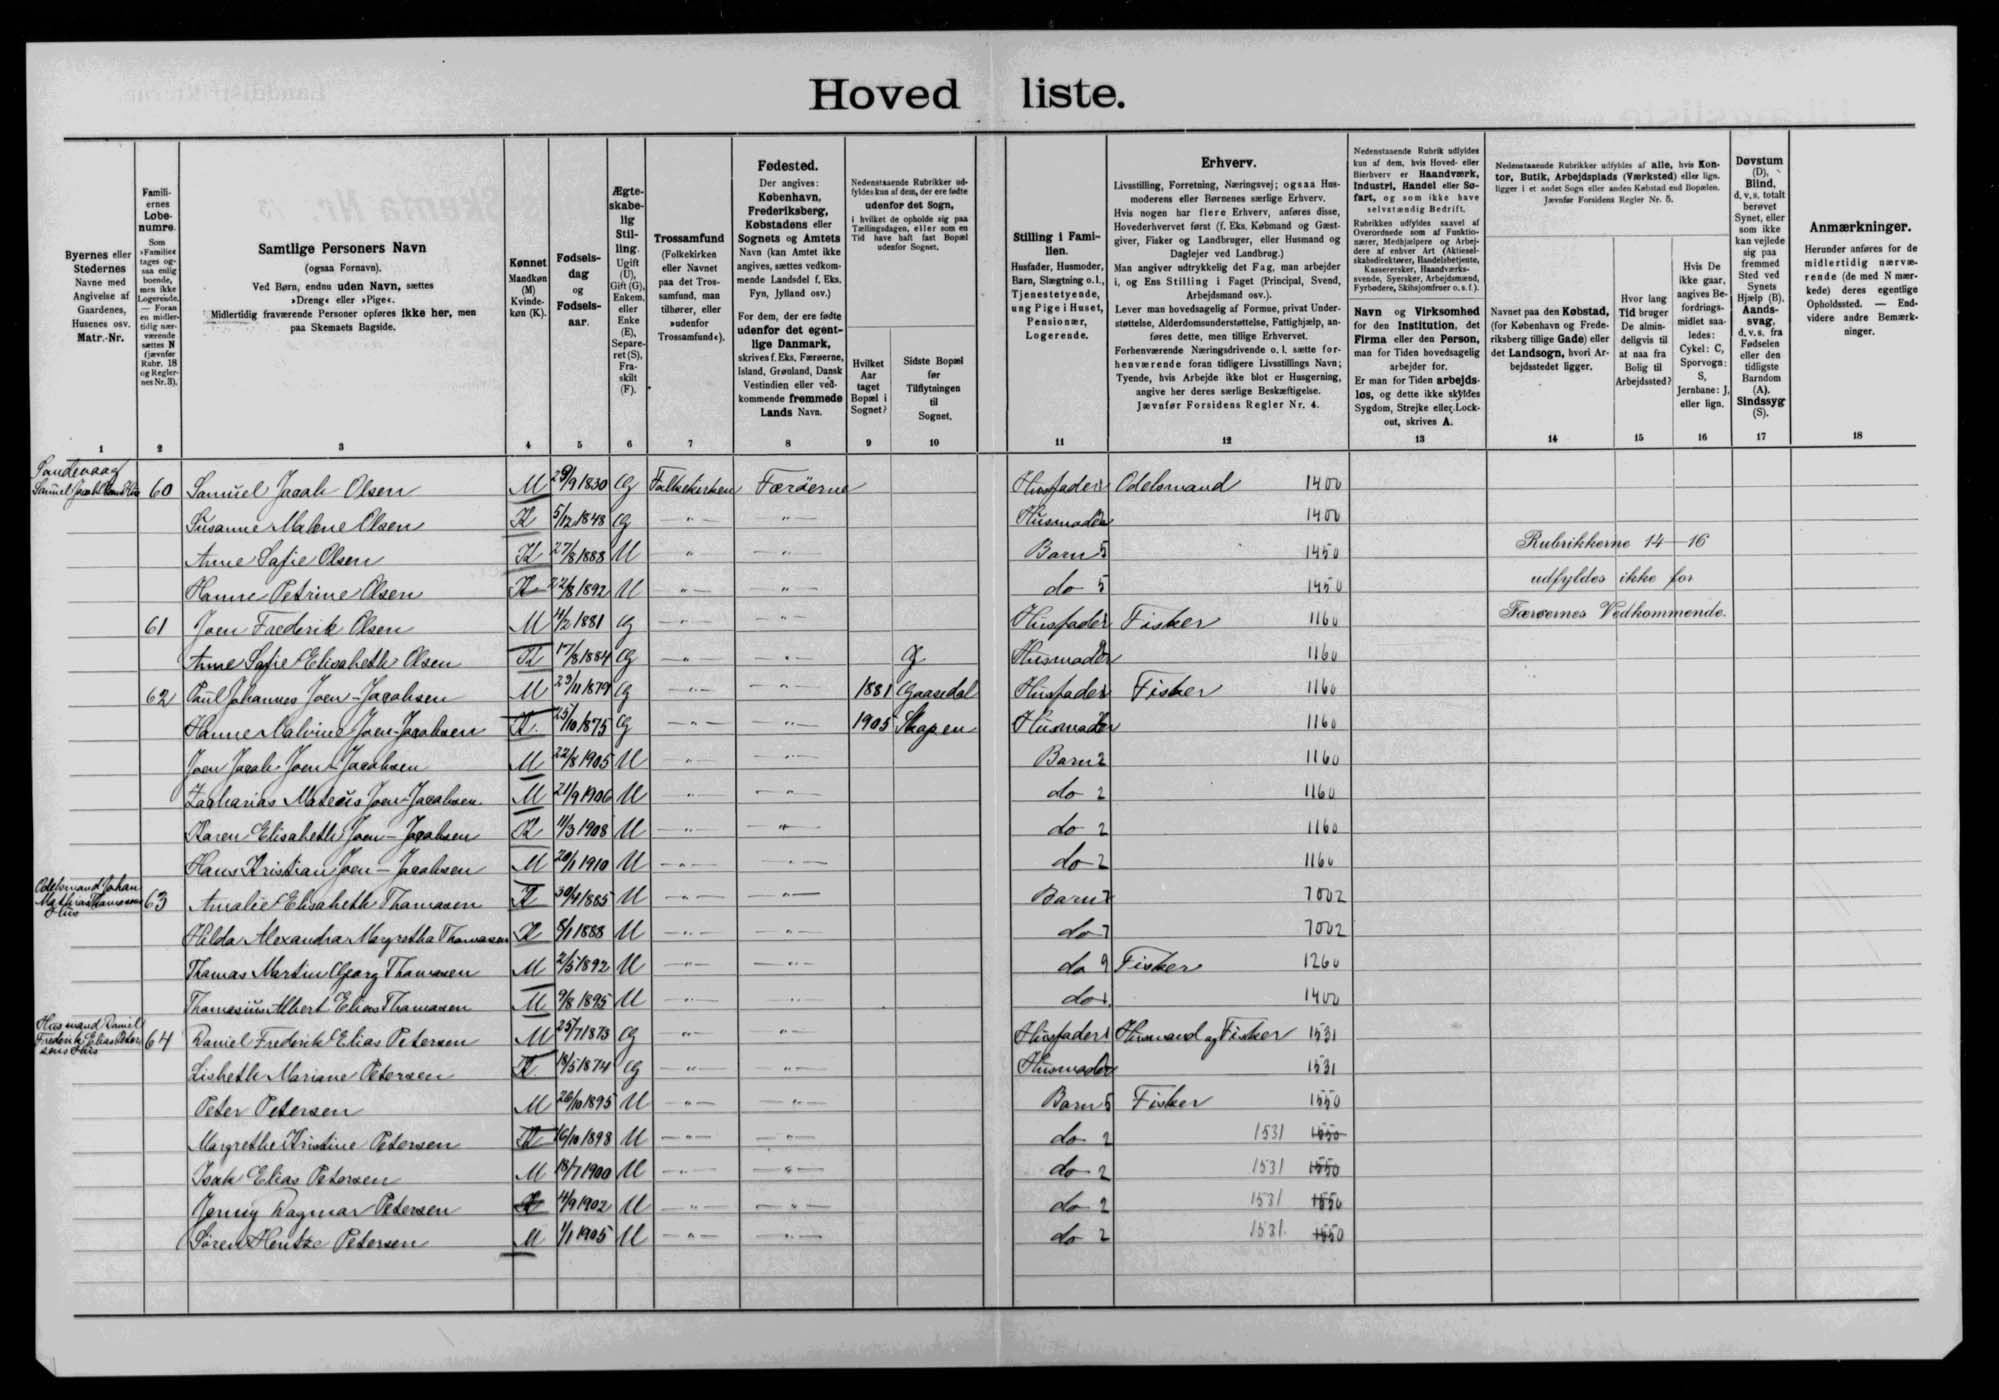 Hoved liste.
Byernes eller Stedernes Navne med Angivelse af Gaardenes, Husenes osv. Matr.-Nr.
Familiernes Løbenumre.
Som »Familie« tages ogsaa enlig boende, men ikke Logerende. — Foran en midlertidig nærværende sættes N (jævnfør Rubr. 18 og Regler-nes Nr. 3).
Samtlige Personers Navn
(ogsaa Fornavn).
Ved Børn, endnu uden Navn, sættes »Dreng« eller »Pige«.
Midlertidig fraværende Personer opføres ikke her, men paa Skemaets Bagside.
Kønnet
Mandkøn (M) Kvindekøn (K).
Fødselsdag og Fødselsaar.
Ægteskabelig Stilling.
Ugift (U), Gift (G), Enkem. eller Enke (E), Separeret (S), Fraskilt (F).
Trossamfund
(Folkekirken eller Navnet paa det Trossamfund, man tilhører, eller »udenfor Trossamfund«).
Fødested.
Der angives:
København, Frederiksberg, Købstadens eller Sognets og Amtets Navn (kan Amtet ikke angives, sættes vedkommende Landsdel f. Eks. Fyn, Jylland osv.)
For dem, der ere fødte udenfor det egentlige Danmark, skrives f. Eks. Færøerne, Island, Grønland, Dansk Vestindien eller vedkommende fremmede Lands Navn.
Nedenstaaende Rubrikker udfyldes kun af dem, der ere fødte udenfor det Sogn, i hvilket de opholde sig paa Tællingsdagen, eller som en Tid have haft fast Bopæl udenfor Sognet.
Hvilket Aar taget Bopæl i Sognet?
Sidste Bopæl før Tilflytningen til Sognet.
Stilling i Familien.
Husfader, Husmoder, Barn, Slægtning o. l., Tjenestetyende, ung Pige i Huset, Pensionær, Logerende.
Erhverv.
Livsstilling, Forretning, Næringsvej; ogsaa Husmoderens eller Børnenes særlige Erhverv.
Hvis nogen har flere Erhverv, anføres disse, Hovederhvervet først (f. Eks. Købmand og Gæstgiver, Fisker og Landbruger, eller Husmand og Daglejer ved Landbrug.)
Man angiver udtrykkelig det Fag, man arbejder i, og Ens Stilling i Faget (Principal, Svend, Arbejdsmand osv.).
Lever man hovedsagelig af Formue, privat Understøttelse, Alderdomsunderstøttelse, Fattighjælp, anføres dette, men tillige Erhvervet.
Forhenværende Næringsdrivende o. l. sætte forhenværende foran tidligere Livsstillings Navn; Tyende, hvis Arbejde ikke blot er Husgerning, angive her deres særlige Beskæftigelse.
Jævnfør Forsidens Regler Nr. 4.
Nedenstaaende Rubrik udfyldes kun af dem, hvis Hoved- eller Bierhverv er Haandværk, Industri, Handel eller Søfart, og som ikke have selvstændig Bedrift.
Rubrikken udfyldes saavel af Overordnede som af Funktionærer, Medhjælpere og Arbejdere af enhver Art (Aktieselskabsdirektører, Handelsbetjente, Kasserersker, Haandværkssvende, Syersker, Arbejdsmænd, Fyrbødere, Skibsjomfruer o. s. f.).
Navn og Virksomhed for den Institution, det Firma eller den Person, man for Tiden hovedsagelig arbejder for.
Er man for Tiden arbejdsløs, og dette ikke skyldes Sygdom, Strejke eller Lockout, skrives A.
Nedenstaaende Rubrikker udfyldes af alle, hvis Kontor, Butik, Arbejdsplads (Værksted) eller lign. ligger i et andet Sogn eller anden Købstad end Bopælen.
Jævnfør Forsidens Regler Nr. 5.
Navnet paa den Købstad, (for København og Frederiksberg tillige Gade) eller det Landsogn, hvori Arbejdsstedet ligger.
Hvor lang Tid bruger De almindeligvis til at naa fra Bolig til Arbejdssted?
Hvis De ikke gaar, angives Befordringsmidlet saaledes: Cykel: C, Sporvogn: S, Jernbane: J, eller lign.
Døvstum (D), Blind, d. v. s. totalt berøvet Synet, eller som ikke kan vejlede sig paa fremmed Sted ved Synets Hjælp (B). Aandssvag, d. v. s. fra Fødselen eller den tidligste Barndom (A). Sindssyg (S).
Anmærkninger.
Herunder anføres for de midlertidig nærværende (de med N mærkede) deres egentlige Opholdssted. — Endvidere andre Bemærkninger.
1 2 3 4 5 6 7 8 9 10 11 12 13 14 15 16 17 18
Sandevaag
Samuel Jacob Olsens Hus 60 Samuel Jacob Olsen M 29/9 1830 G Folkekirken Færöerne Husfader 1 Odelsmand 1400
Susanne Malene Olsen K 5/12 1848 G —"— " Husmoder 1400
Anne Sofie Olsen K 27/8 1888 U " —"— Barn 5 1450 Rubrikkerne 14—16
Hanne Petrine Olsen K 22/8 1892 U —"— —"— do 5 1450 udfyldes ikke for
61 Joen Frederik Olsen M 4/2 1881 G —"— —"— Husfader 1 Fisker 1160 Færøernes Vedkommende.
Anne Sofie Elisabeth Olsen K 17/8 1884 G " —"— Husmoder 1160
62 Paul Johannes Joen-Jacobsen M 23/11 1879 G —"— —"— 1881 Gaasedal Husfader 1 Fisker 1160
Hanne Malvine Joen-Jacobsen K 25/10 1875 G —"— —"— 1905 Skopen Husmoder 1160
Joen Jacob Joen-Jacobsen M 22/8 1905 U " —"— Barn 2 1160
Zacharias Mateus Joen-Jacobsen M 21/9 1906 U —"— —"— do 2 1160
Karen Elisabeth Joen-Jacobsen K 11/3 1908 U —"— " do 2 1160
Hans Kristian Joen-Jacobsen M 20/1 1910 U —"— —"— do 2 1160
Odelsmand Johan Mathias Thomasens Hus 63 Amalie Elisabeth Thomasen K 30/4 1885 U —"— —"— Barn 7 7002
Hilda Alexandra Margretha Thomasen K 8/1 1888 U —"— —"— do 7 7002
Thomas Martin Georg Thomasen M 2/5 1892 U —"— —"— do 9 Fisker 1260
Thomasius Albert Elias Thomasen M 9/8 1895 U —"— —"— do 1400
Husmand Daniel Frederik Elias Petersens Hus 64 Daniel Frederik Elias Petersen M 25/7 1873 G —"— —"— Husfader 1 Husmand og Fisker 1531
Lisbeth Mariane Petersen K 14/5 1874 G —"— —"— Husmoder 1531
Peter Petersen M 26/10 1895 U —"— —"— Barn 5 Fisker 1550
Margrethe Kristine Petersen K 16/10 1898 U —"— —"— do 2 1531 1550
Isak Elias Petersen M 18/7 1900 U —"— —"— do 2 1531 1550
Jenny Dagmar Petersen K 4/9 1902 U —"— —"— do 2 1531 1550
Sören Hentze Petersen M 1/1 1905 U —"— —"— do 2 1531. 1550